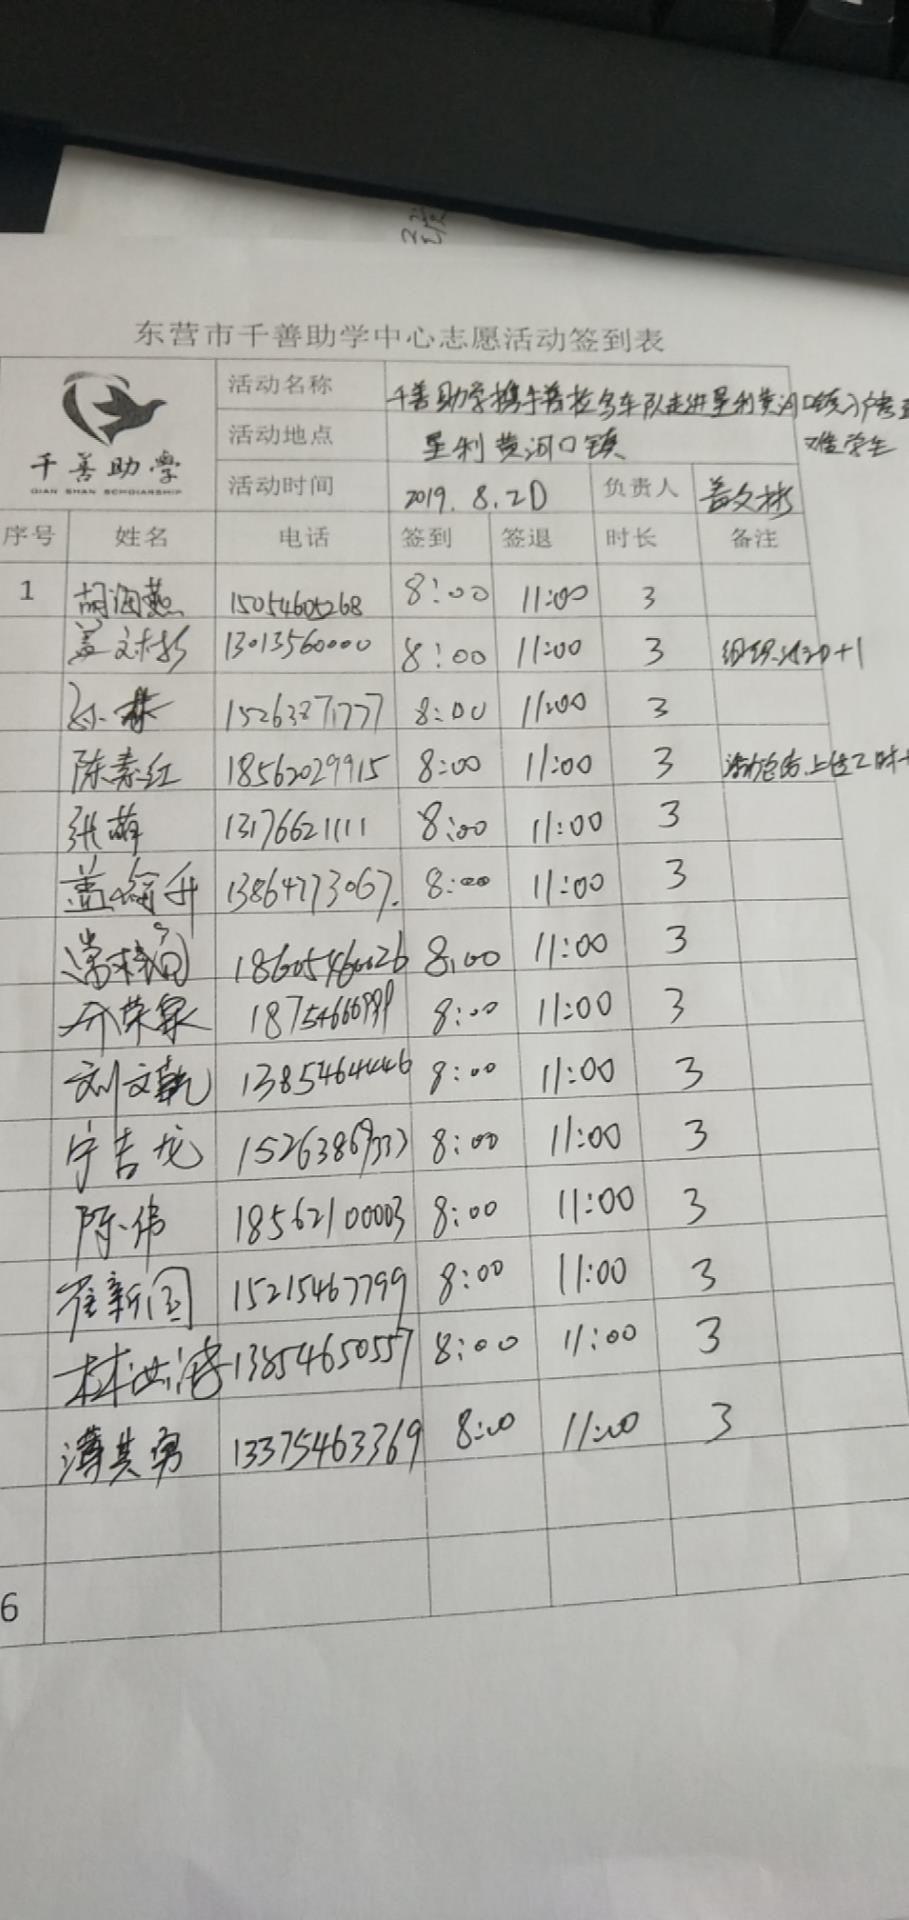 东营市千善助学中心志愿活动签到表
千善助学
QIAN SHAN SCHOLARSHIP
活动名称 千善助学携手普拉多车队走进垦利黄河口镇入户考
难学生
活动地点 垦利黄河口镇
活动时间 2019.8.20 负责人 盖文彬
序号 姓名 电话 签到 签退 时长 备注
1 胡海燕 15054605268 8:00 11:00 3
盖文彬 13013560000 8:00 11:00 3 组织 +1
孙 15263871777 8:00 11:00 3
陈素红 18562029915 8:00 11:00 3 上传
张萌 13176621111 8:00 11:00 3
盖 升 13864773067. 8:00 11:00 3
常 18605460026 8:00 11:00 3
荣泉 18754666999 8:00 11:00 3
刘文乾 13854644446 8:00 11:00 3
宁吉龙 8:00 11:00 3
陈伟 18562100003 8:00 11:00 3
崔新国 15215467799 8:00 11:00 3
林洪涛 13854650557 8:00 11:00 3
薄其勇 13375463369 8:00 11:00 3
6